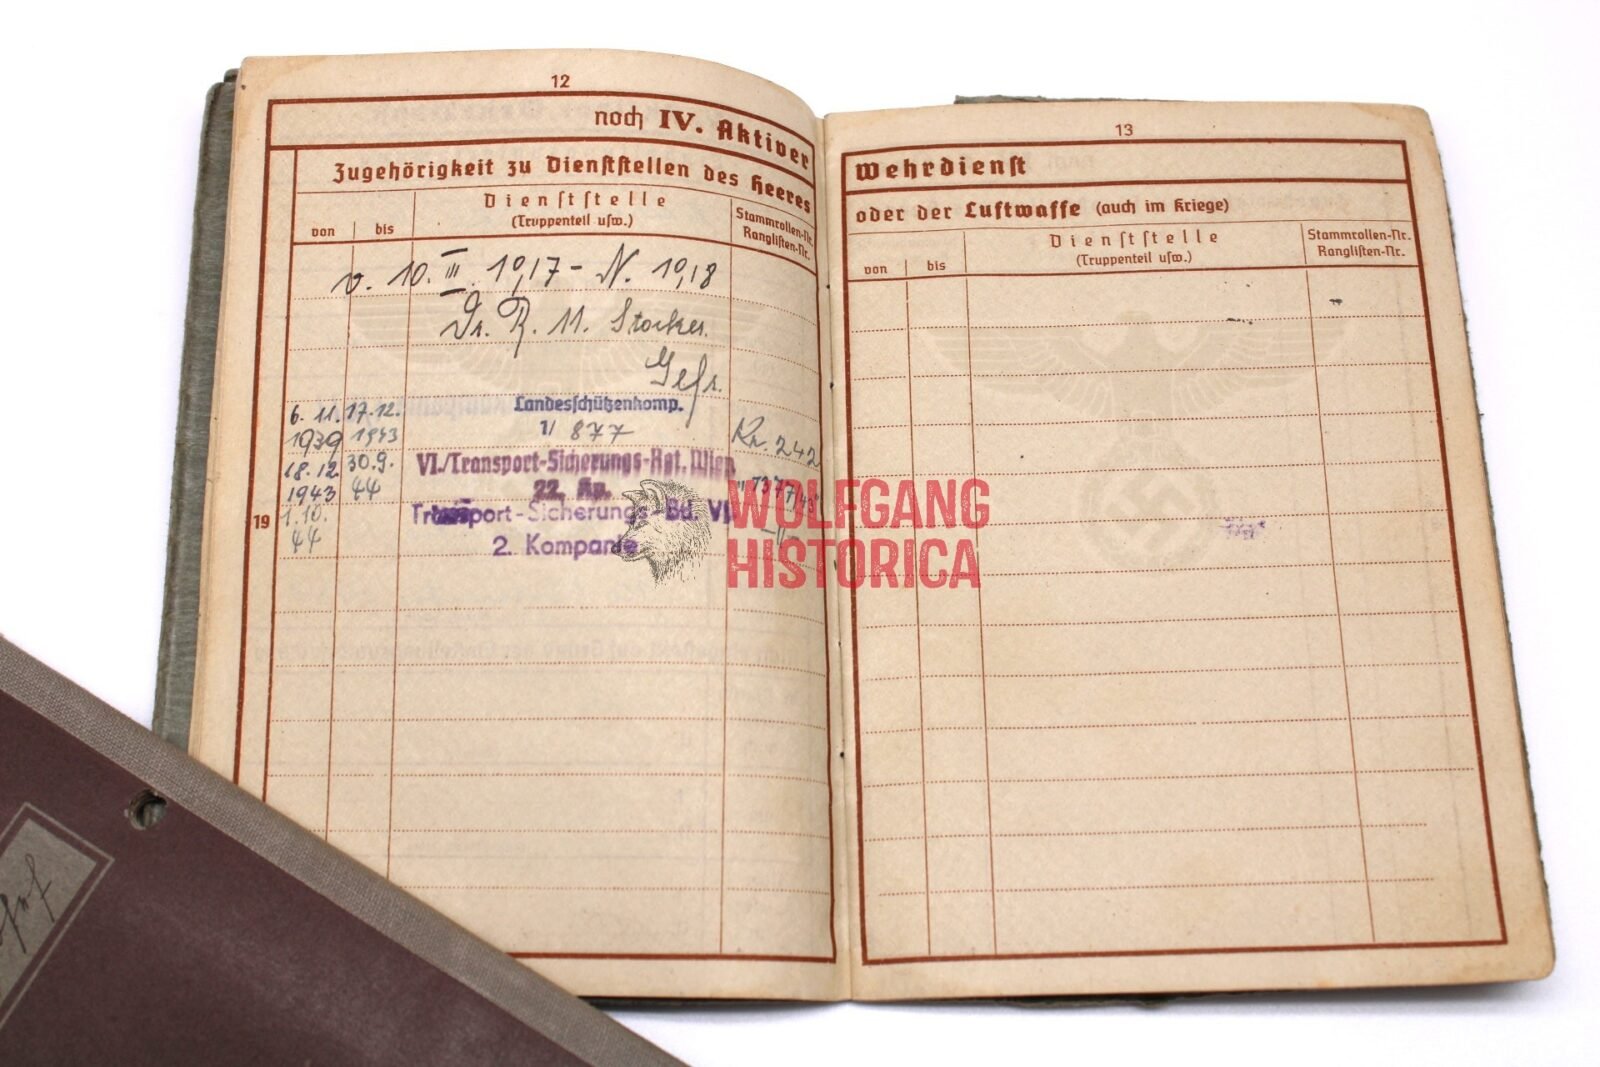 12
noch IV. Aktiver
Zugehörigkeit zu Dienststellen des Heeres
von
bis
Dienststelle
(Truppenteil usw.)
Stammrollen-Nr.
Ranglisten-Nr.
v. 10. III. 1917 - N. 1918
Dr. R. 11. Stocker.
Gefr.
6. 11. 17. 12.
1939 1943
Landesschützenkomp.
1/ 877
Kr. 242
18. 12. 30. 9.
1943 44
VI./Transport-Sicherungs-Rgt. Wien
22. Kp.
"1377/43"
19
1. 10.
44
Transport-Sicherungs-Btl. VI
2. Kompanie
-"-
WOLFGANG
HISTORICA
13
Wehrdienst
oder der Luftwaffe (auch im Kriege)
von
bis
Dienststelle
(Truppenteil usw.)
Stammrollen-Nr.
Ranglisten-Nr.